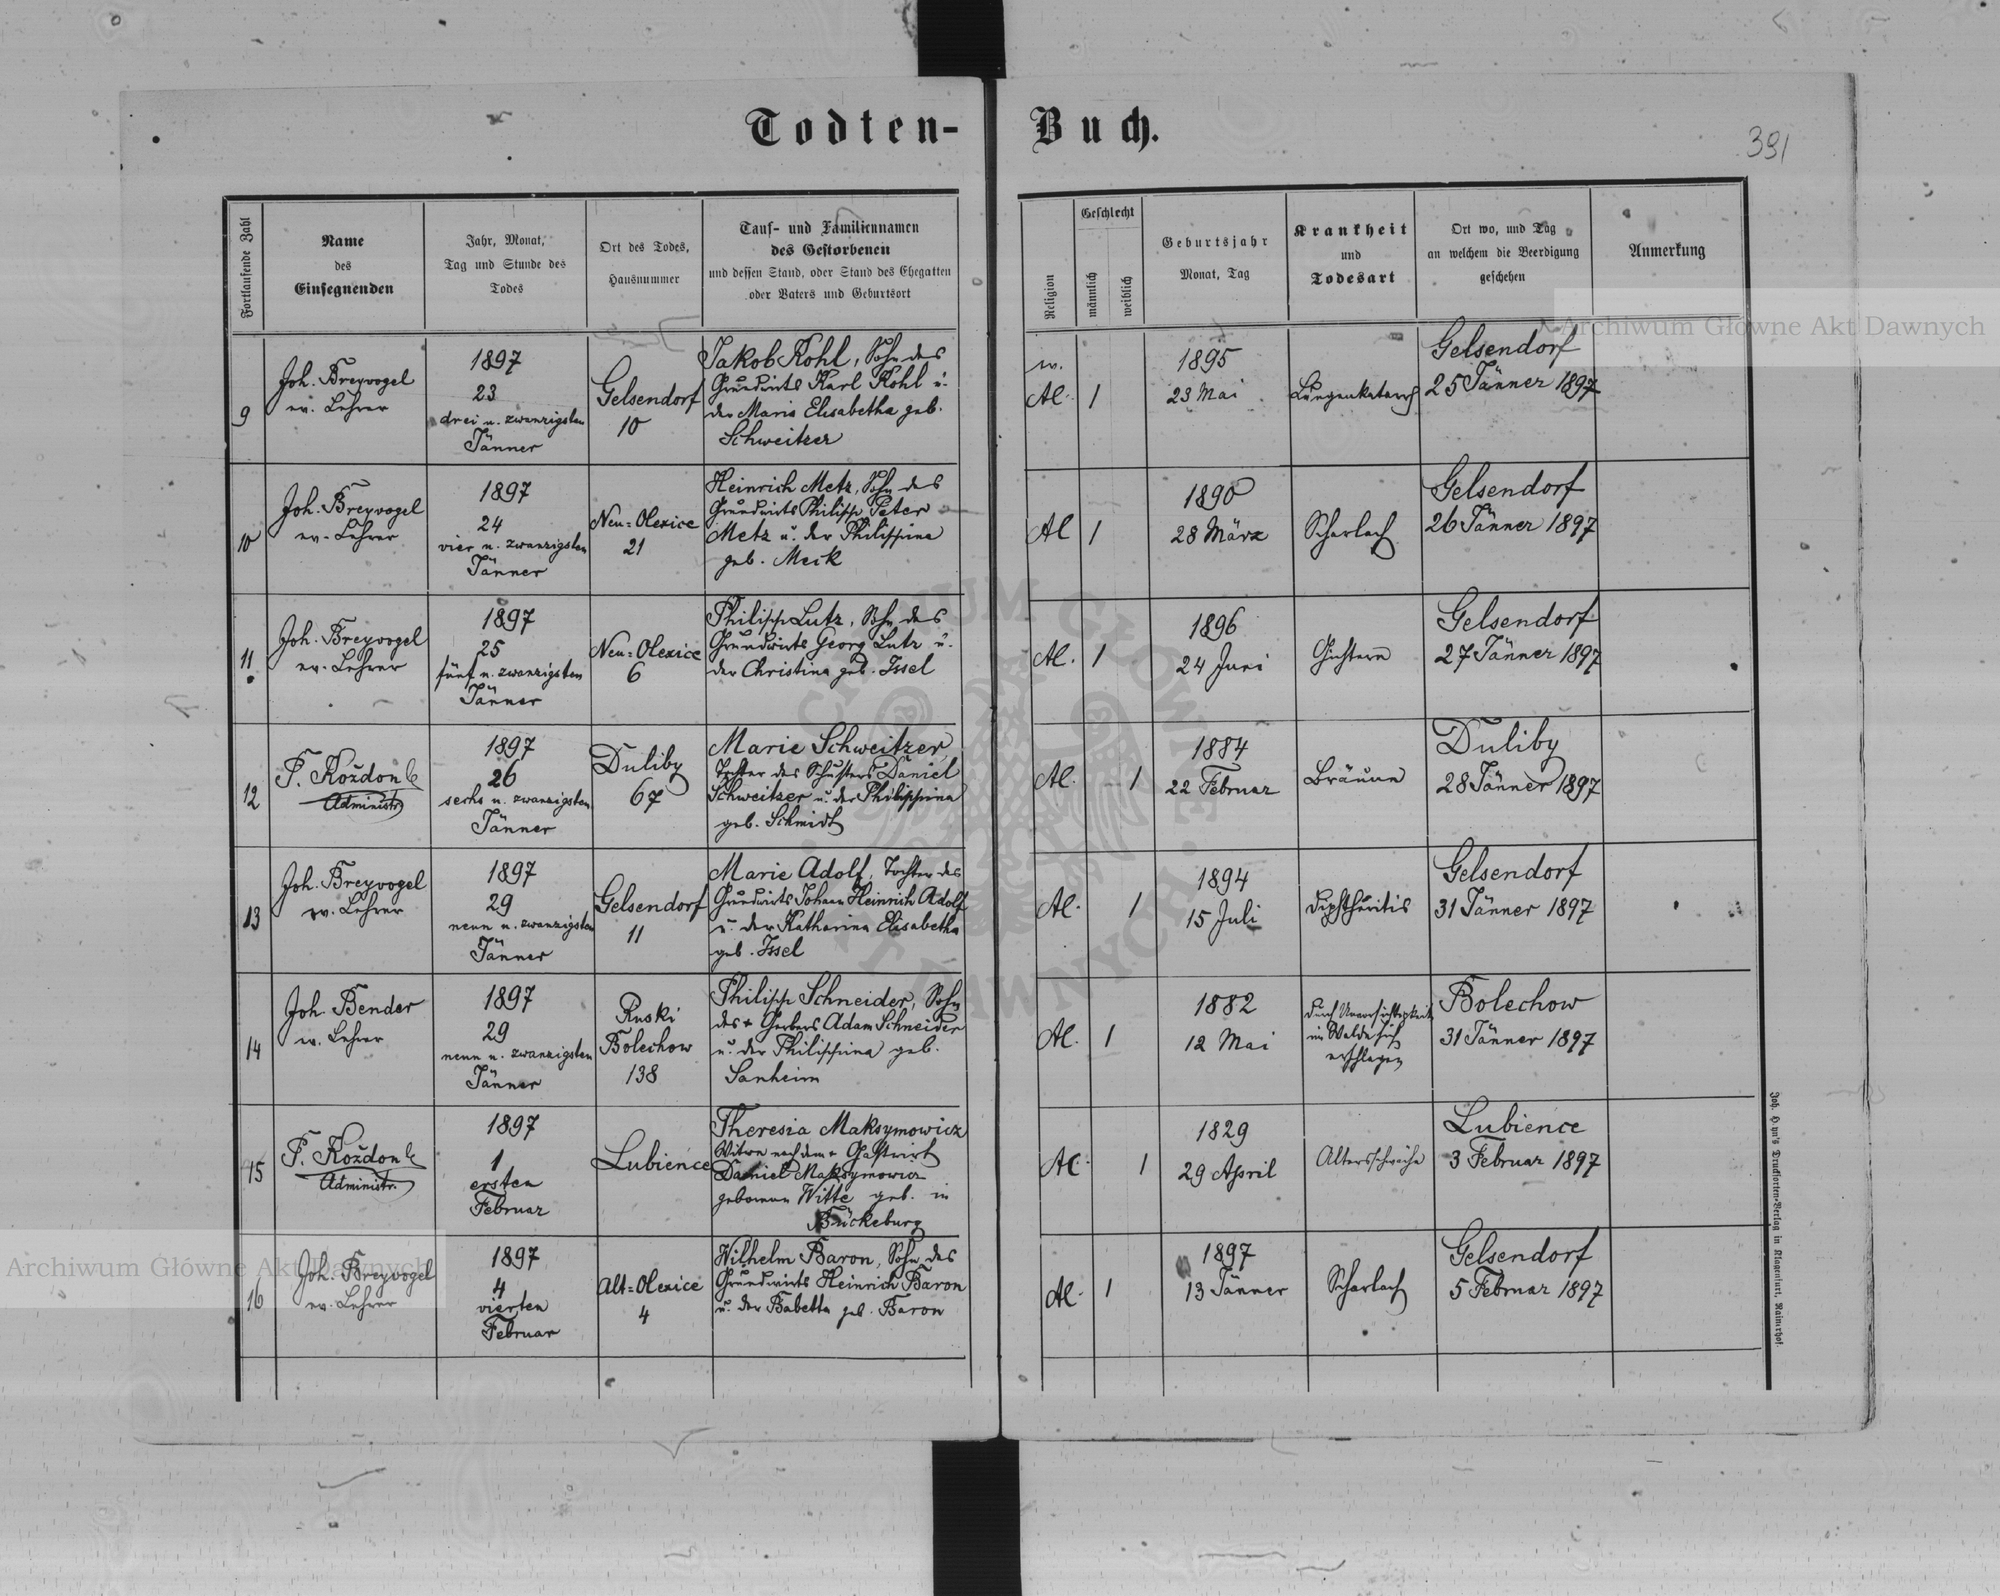 Todten-Buch.
391
Fortlaufende Zahl
Name
des
Einsegnenden
Jahr, Monat,
Tag und Stunde des
Todes
Ort des Todes,
Hausnummer
Tauf- und Familiennamen
des Gestorbenen
und dessen Stand, oder Stand des Ehegatten
oder Vaters und Geburtsort
Religion
Geschlecht
männlich
weiblich
Geburtsjahr
Monat, Tag
Krankheit
und
Todesart
Ort wo, und Tag
an welchem die Beerdigung
geschehen
Anmerkung
9
Joh. Breyvogel
ev. Lehrer
1897
23
drei u. zwanzigsten
Jänner
Gelsendorf
10
Jakob Kohl, Sohn des
Grundwirts Karl Kohl u.
der Maria Elisabetha geb.
Schweitzer
Al.
1
1895
23 Mai
Lungenkatarrh
Gelsendorf
25 Jänner 1897
10
Joh. Breyvogel
ev. Lehrer
1897
24
vier u. zwanzigsten
Jänner
Neu=Olexice
21
Heinrich Metz, Sohn des
Grundwirts Philipp Peter
Metz u. der Philippina
geb. Meck
Al
1
1890
28 März
Scharlach
Gelsendorf
26 Jänner 1897
11
Joh. Breyvogel
ev. Lehrer
1897
25
fünf u. zwanzigsten
Jänner
Neu=Olexice
6
Philipp Lutz, Sohn des
Grundwirts Georg Lutz u.
der Christina geb. Issel
Al.
1
1896
24 Juni
Gichtern
Gelsendorf
27 Jänner 1897
12
P. Koždon
Administr.
1897
26
sechs u. zwanzigsten
Jänner
Duliby
67
Marie Schweitzer,
Tochter des Schusters Daniel
Schweitzer u. der Philippina
geb. Schmidt
Al.
1
1884
22 Februar
Bräune
Duliby
28 Jänner 1897
13
Joh. Breyvogel
ev. Lehrer
1897
29
neun u. zwanzigsten
Jänner
Gelsendorf
11
Marie Adolf, Tochter des
Grundwirts Johann Heinrich Adolf
u. der Katharina Elisabetha
geb. Issel
Al.
1
1894
15 Juli
Diphtheritis
Gelsendorf
31 Jänner 1897
14
Joh. Bender
ev. Lehrer
1897
29
neun u. zwanzigsten
Jänner
Ruski
Bolechow
138
Philipp Schneider, Sohn
des + Gerbers Adam Schneider
u. der Philippina geb.
Sanheim
Al.
1
1882
12 Mai
Durch Unvorsichtigkeit
im Walde sich
erschlagen
Bolechow
31 Jänner 1897
15
P. Koždon
Administr.
1897
1
ersten
Februar
Lubience
Theresia Maksymowicz
Witwe nach dem + Gastwirt
Daniel Maksymowicz
geborenen Witte geb. in
Bückeburg
Al.
1
1829
29 April
Altersschwäche
Lubience
3 Februar 1897
16
Joh. Breyvogel
ev. Lehrer
1897
4
vierten
Februar
Alt=Olexice
4
Wilhelm Baron, Sohn des
Grundwirts Heinrich Baron
u. der Babetta geb. Baron
Al.
1
1897
13 Jänner
Scharlach
Gelsendorf
5 Februar 1897
Archiwum Główne Akt Dawnych
Archiwum Główne Akt Dawnych